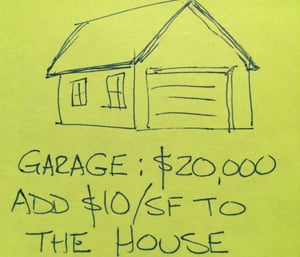 GARAGE: $20,000
ADD $10/SF TO
THE HOUSE